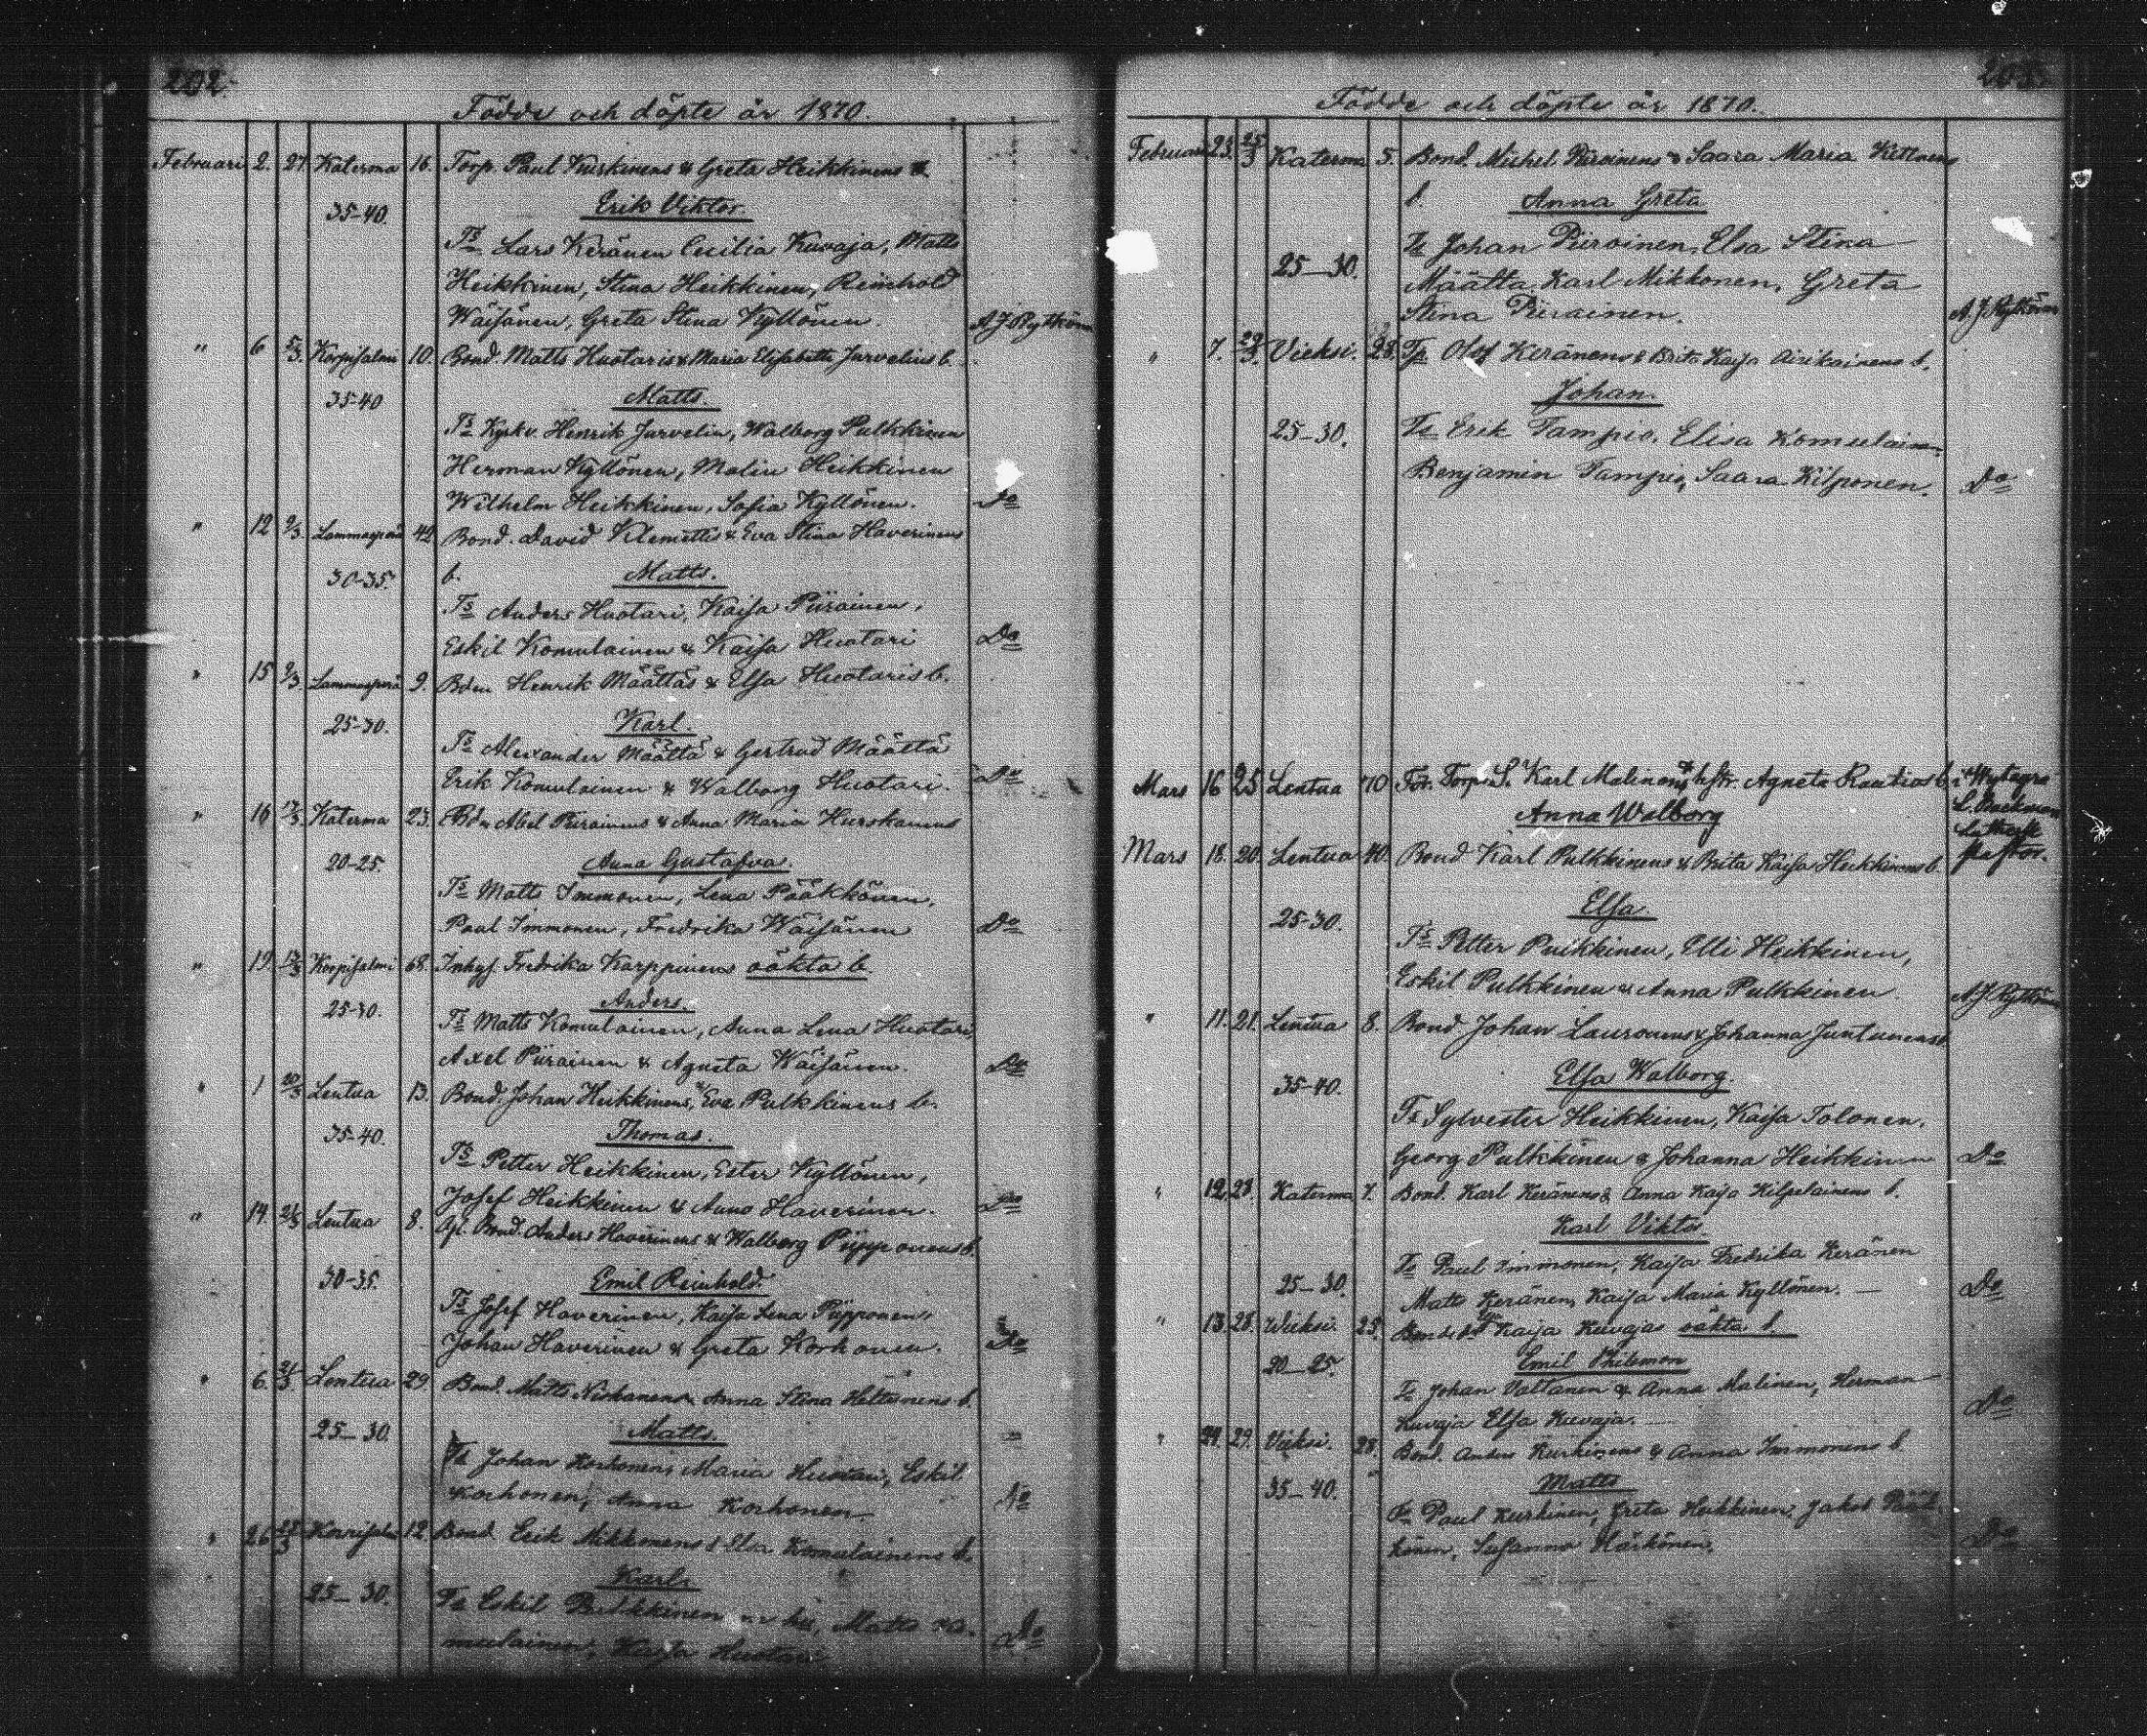 202.
Födde och döpte år 1870.
Februari 2. 27. Katerma 16. Torp. Paul Kurkinens & Greta Heikkinens b.
35-40. Erik Viktor.
Ts Lars Keränen Cecilia Kuvaja, Matts
Heikkinen, Stina Heikkinen, Reinhold
Wäisänen, Greta Stina Kyllönen. A J Rytkönen
" 6 5/3. Korpisalmi 10. Bond. Matts Huotaris & Maria Elisabeth Jurvelius b.
35-40 Matts.
Ts Kyrkv. Henrik Jurvelin, Walborg Pulkkinen
Herman Kyllönen, Malin Heikkinen
Wilhelm Heikkinen, Sofia Kyllönen. Do
" 12 9/3 Lammasperä 42 Bond. David Klemettis & Eva Stina Haverinens
30-35. b. Matts.
Ts Anders Huotari, Kaisa Piirainen,
Eskil Komulainen & Kaisa Huotari Do
" 15 9/3 Lammasperä 9. Bdn Henrik Määttäs & Elsa Huotaris b.
25-30. Karl.
Ts Alexander Määttä & Gertrud Määttä
Erik Komulainen & Walborg Huotari. Do
" 16 Katerma 23. Bdn Abel Piirainens & Anna Maria Hurskainens
20-25. Anna Gustafva.
Ts Matts Immonen, Lena Pääkkönen,
Paul Immonen, Fredrika Wäisänen Do
" 19. Korpisalmi 68. Inhys. Fredrika Karppinens oäkta b.
25-30. Anders.
Ts Matts Komulainen, Anna Lena Huotari,
Axel Piirainen & Agneta Wäisänen. Do
" 1 20/3 Lentua 13. Bond. Johan Heikkinens, & Eva Pulkkinens b.
35-40. Thomas.
Ts Petter Heikkinen, Ester Kyllönen,
Josef Heikkinen & Anna Haverinen. Do
" 14. 21/3 Lentua 8. Bond. Anders Haverinens & Walborg Piipponens b.
30-35. Emil Reinhold.
Ts Josef Haverinen, Kaisa Lena Piipponen,
Johan Haverinen & Greta Korhonen. Do
" 6. 21/3 Lentua 29. Bond. Matts Niskanens & Anna Stina Heltunens b.
25-30. Matts.
Ts Johan Korhonen, Maria Huotari, Eskil
Korhonen, Anna Korhonen. Do
" 26 Korpisalmi 12. Bond Erik Mikkonens & Elsa Komulainens b.
25-30. Karl.
Ts Eskil Pulkkinen Matts Ko-
mulainen, Kaisa Huotari. Do
203.
Födde och döpte år 1870.
Februari 23. 25/3 Katerma 5. Bond. Michel Piirainens & Saara Maria
b. Anna Greta
Ts Johan Piirainen, Elsa Stina
25-30. Määttä, Karl Mikkonen, Greta
Stina Piirainen. A. J. Rytkönen
" 7. 29/3. Vieksi. 28. Tp. Olof Keränens & Brita Kaisa Airikainens b.
Johan.
25-30. Ts Erik Tampio, Elisa Komulainen,
Benjamin Tampio, Saara Kilponen. Do
Mars 16 25 Lentua 70 För. Torp. S. Karl Malinens & hstr. Agneta Rautios b. i Wytegra
Anna Walborg L. Backman
Luthersk
Mars 18. 20. Lentua 40. Bond Karl Pulkkinens & Brita Kaisa Heikkinens b. pastor.
25-30. Elsa
Ts Petter Pulkkinen, Elli Heikkinen,
Eskil Pulkkinen & Anna Pulkkinen. A J Rytkönen
" 11. 21. Lentua 8. Bond Johan Lauronens & Johanna Juntunens b.
35-40. Elsa Walborg.
Ts Sylvester Heikkinen, Kaisa Tolonen,
Georg Pulkkinen & Johanna Heikkinen Do
" 12. 28. Katerma 7. Bond. Karl Keränens & Anna Kaisa Kilpeläinens b.
Karl Viktor.
25-30. Ts Paul Immonen, Kaisa Fredrika Keränen
Matts Keränen, Kaisa Maria Kyllönen. Do
" 13. 28. Vieksi. 25. Kaisa Kuvajas oäkta b.
20-25. Emil Philemon
Ts Johan Valtanen & Anna Malinen, Herman
Kuvaja Elsa Kuvaja. Do
" 24. 29. Vieksi. 28. Bond. Anders Kurkinens & Anna Immonens b.
35-40. Matts
Ts Paul Kurkinen, Greta Heikkinen, Jakob Pääk-
könen, Susanna Härkönen. Do